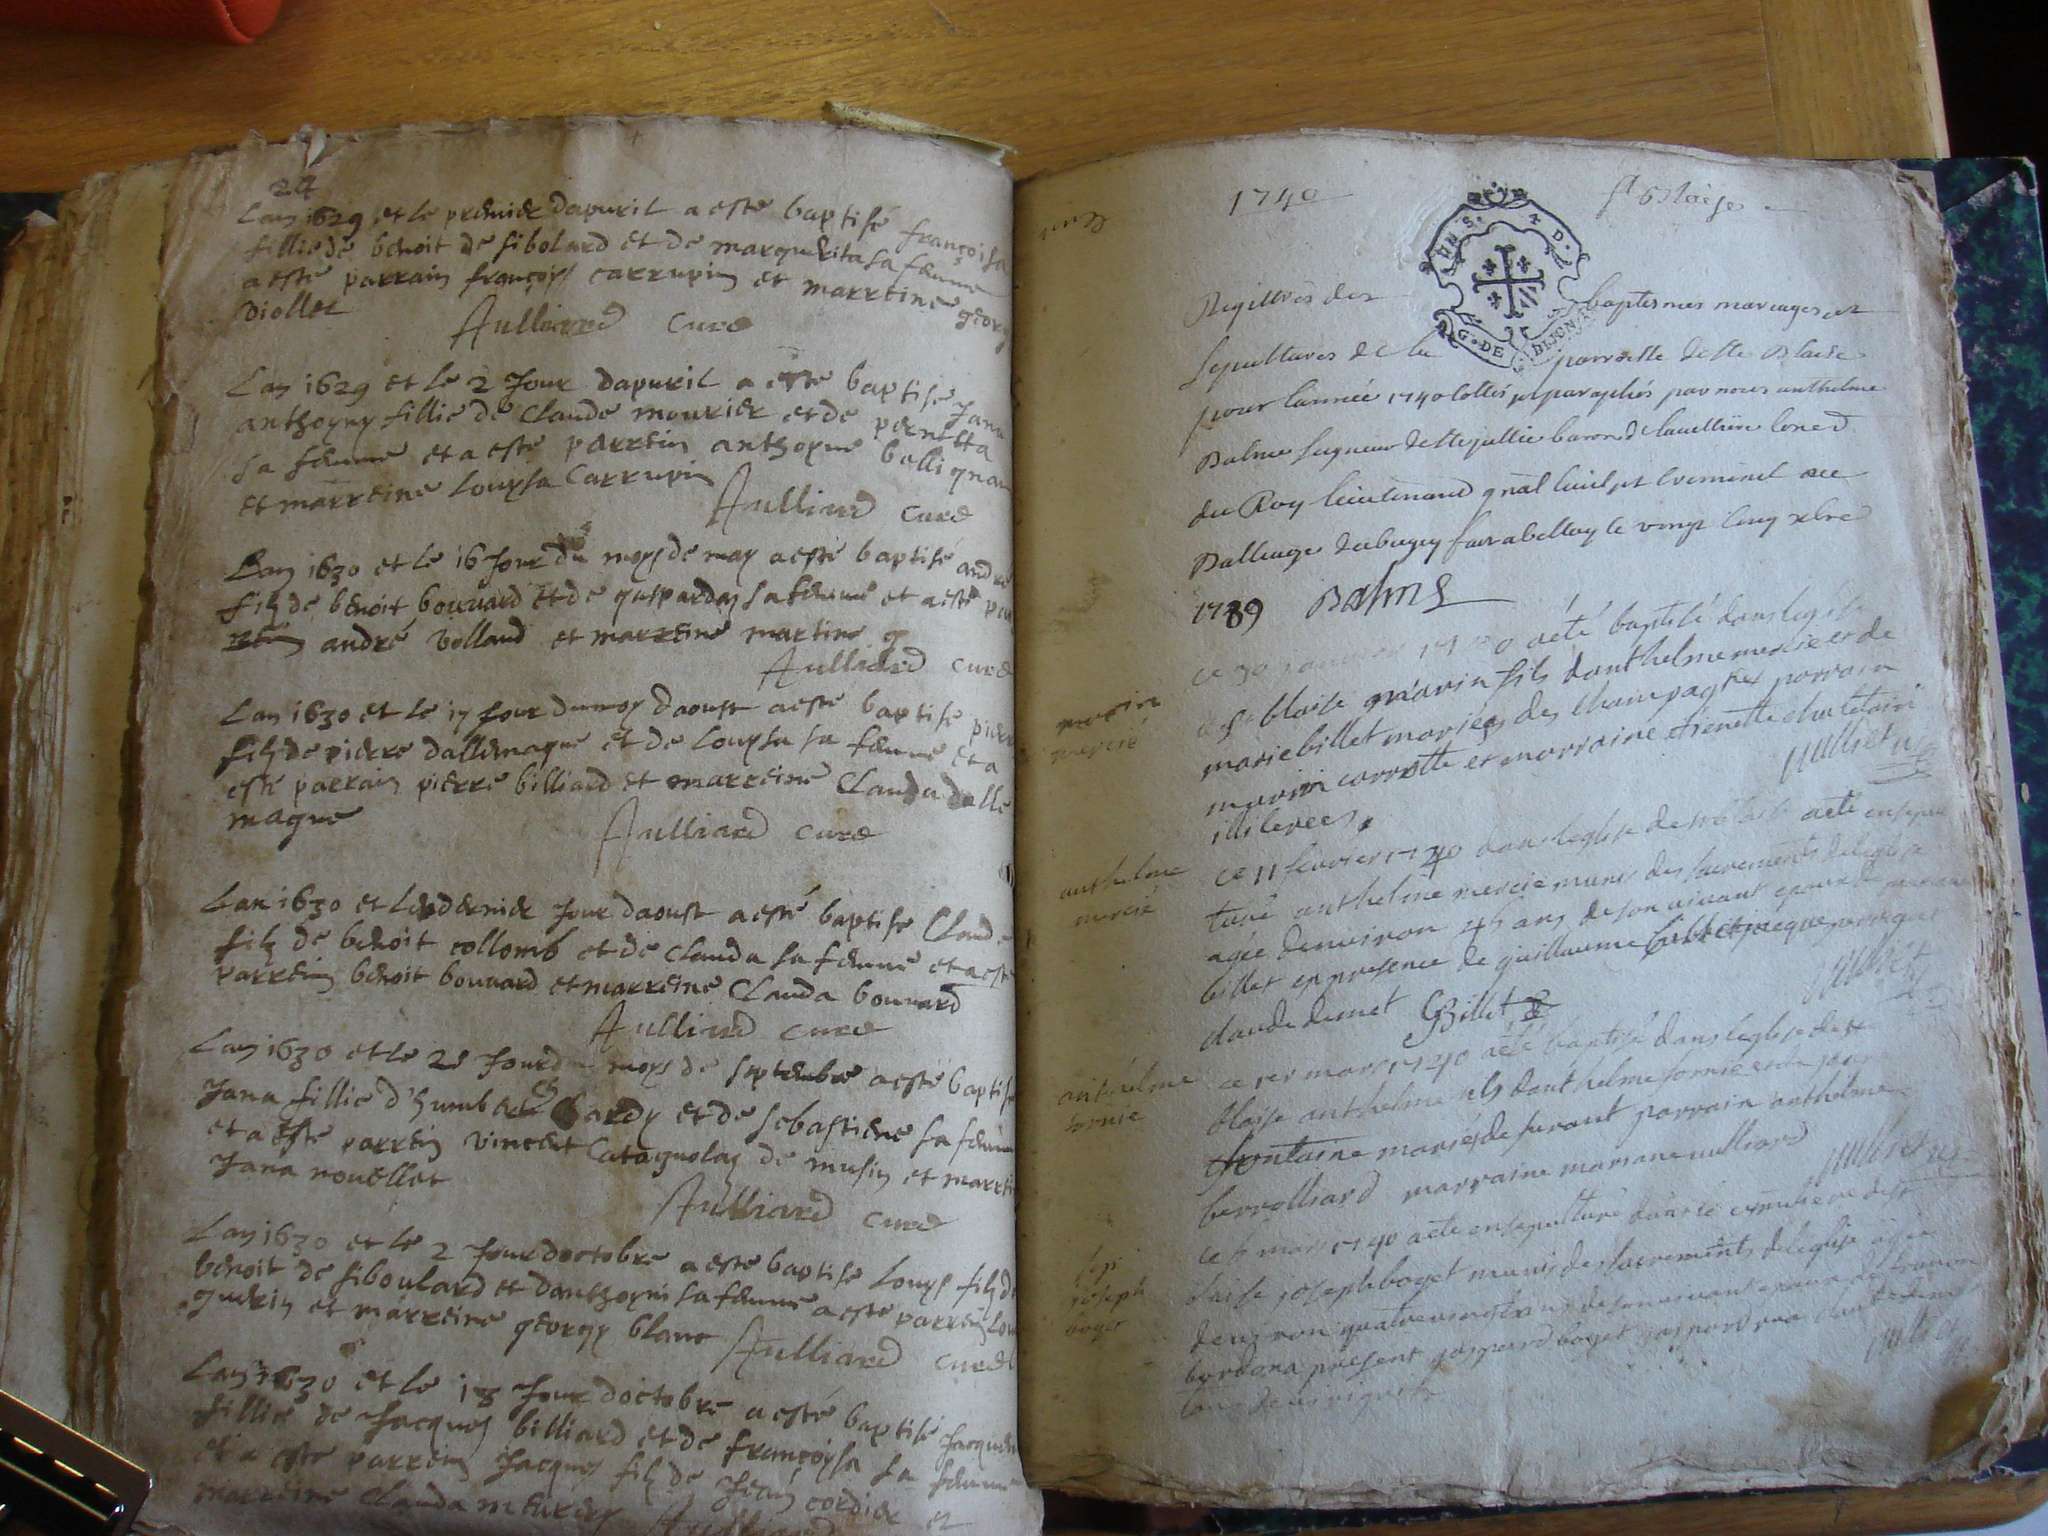 24
Lan 1629 et le premier dapuril a esté baptisé françoisa
fillie de benoit de sibolard et de marguerita sa femme
a esté parrain françois carrupin et marreine georg
Diollet
Aulliard curé
Lan 1629 et le 2 Jour dapuril a esté baptisé Jana
anthoyny fillie de Claude mourier et de pernetta
sa femme et a esté parrein anthoyne bollignan
et marreine Louysa Carrupin
Aulliard curé
Lan 1630 et le 16 Jour du moys de may a esté baptisé andré
filz de benoit bouuard et de gaspardaz sa femme et a esté par
rein andré Volland et marreine martine
Aulliard curé
Lan 1630 et le 17 Jour du moy daoust a esté baptisé pierre
filz de pierre dallemagne et de Louysa sa femme et a
esté parrain pierre billiard et marreine Clauda dalle
magne
Aulliard curé
Lan 1630 et le dernier Jour daoust a esté baptisé Claude
filz de benoit collomb et de Clauda sa femme et a esté
parrein benoit bouuard et marreine Clauda bouuard
Aulliard curé
Lan 1630 et le Jour du moys de septembre a esté baptisé
Jana fillie d'humbert bardy et de sebastiene sa femme
et a esté parrein vincent Catagnolaz de musin et marrei
Jana nouellet
Aulliard curé
Lan 1630 et le 2 Jour doctobre a esté baptisé Louys filz de
benoit de siboulard et danthoyni sa femme a esté parrein Lou
guerin et marreine georgy blanc
Aulliard curé
Lan 1630 et le 18 Jour doctobre a esté baptisé Jacquem
fillie de Jacques billiard et de françoysa sa femme
et a esté parrein Jacques filz de Jean cordier et
marreine Clauda
Aulliard
1740 St Blaise
GEN
D.
G. DE DIJON
Registres des baptesmes mariages et
sepultures de la parroisse de St Blaise
pour lannée 1740 cottés et paraphés par nous anthelme
Balme seigneur de Ste jullie baron de
du Roy lieutenand gnal ciuil et criminel au
Balliage du bugey fait a belley le vingt cinq xbre
1739 Balme
marin
mercié
ce 30 janvier 1740 a été baptisé dans leglise
de St blaise marin fils danthelme mercie et de
marie billet mariés des Champagnes parrain
marin carrotte et marraine etienette chatelain
illiterees
julliet
anthelme
mercié
ce 11 fevrier 1740 dans leglise de St blaise a eté ensepul
turé anthelme mercie munis des sacrements de leglise
agée denviron 45 ans de son vivant epoux de marie
billet en presence de guillaume billet jacque
claude demet GBillet
julliet
anthelme
sornie
ce 1er mars 1740 a été baptisé dans leglise de St
blaise anthelme fils danthelme sornie et de
fontaine mariés de surant parrain anthelme
berrolliard marraine mariane julliard
julliet
sep
joseph
boget
ce 6 mars 1740 a ete ensepulturé dans le cimetiere de St
blaise joseph boget munis des sacrements de leglise agée
denviron quatrevingt ans de son vivant epoux de
bordona present gaspard boget gaspard claude demet
julliet